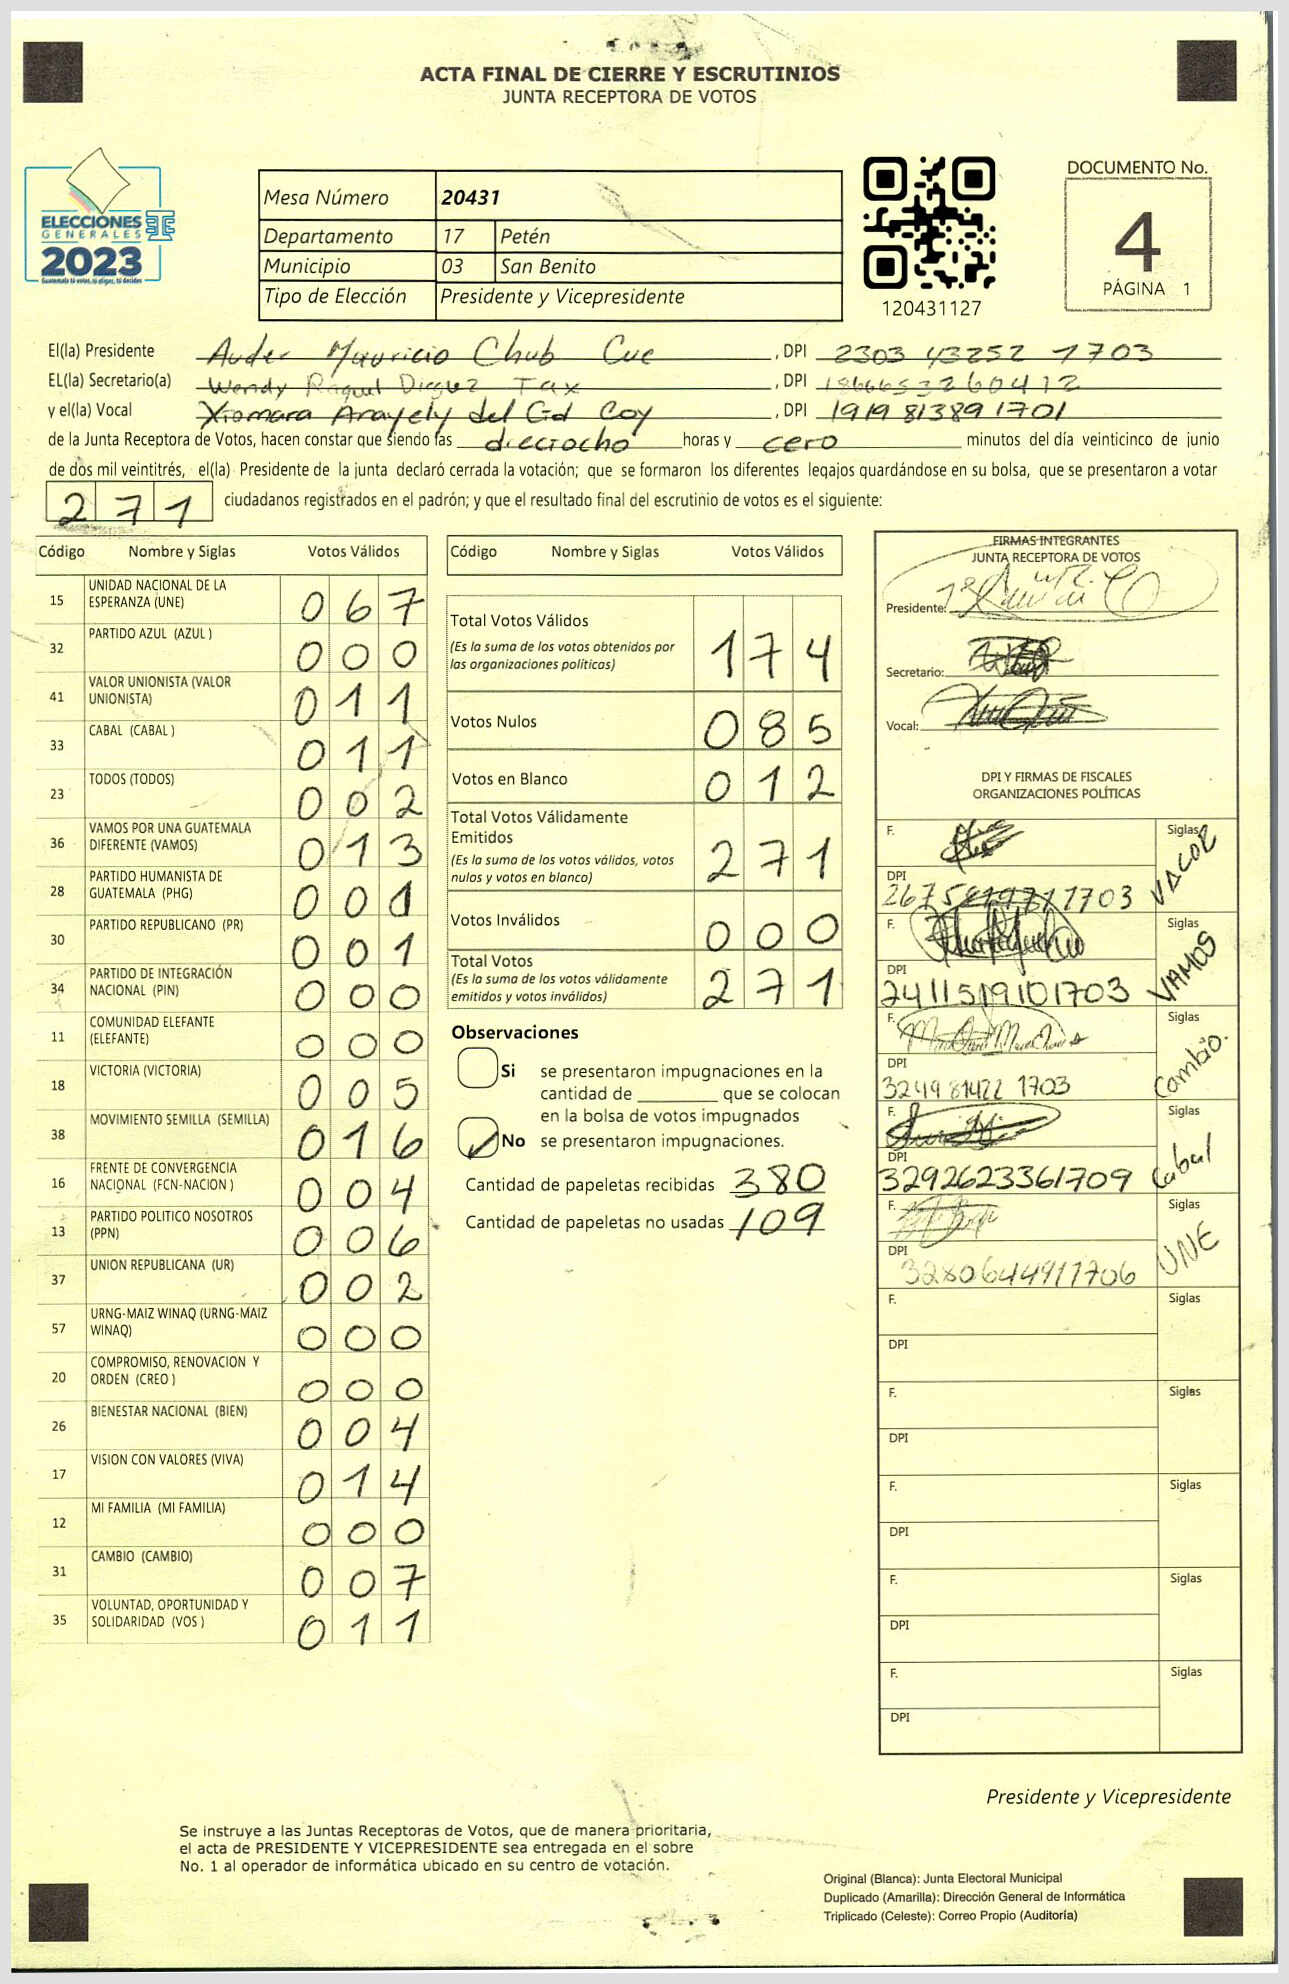 ACTA FINAL DE CIERRE Y ESCRUTINIOS
JUNTA RECEPTORA DE VOTOS
ELECCIONES
GENERALES
2023
Guatemala tú votas, tú eliges, tú decides
Mesa Número 20431
Departamento 17 Petén
Municipio 03 San Benito
Tipo de Elección Presidente y Vicepresidente
120431127
DOCUMENTO No.
4
PÁGINA 1
El(la) Presidente Auder Mauricio Chub Cuc , DPI 2303 43252 1703
EL(la) Secretario(a) Wendy Raquel Dieguez Tax , DPI 1866653260412
y el(la) Vocal Xiomara Arayely del Cid Coy , DPI 1919 81389 1701
de la Junta Receptora de Votos, hacen constar que siendo las dieciocho horas y cero minutos del día veinticinco de junio
de dos mil veintitrés, el(la) Presidente de la junta declaró cerrada la votación; que se formaron los diferentes legajos guardándose en su bolsa, que se presentaron a votar
271 ciudadanos registrados en el padrón; y que el resultado final del escrutinio de votos es el siguiente:
Código Nombre y Siglas Votos Válidos
15 UNIDAD NACIONAL DE LA ESPERANZA (UNE) 067
32 PARTIDO AZUL (AZUL ) 000
41 VALOR UNIONISTA (VALOR UNIONISTA) 011
33 CABAL (CABAL ) 011
23 TODOS (TODOS) 002
36 VAMOS POR UNA GUATEMALA DIFERENTE (VAMOS) 013
28 PARTIDO HUMANISTA DE GUATEMALA (PHG) 001
30 PARTIDO REPUBLICANO (PR) 001
34 PARTIDO DE INTEGRACIÓN NACIONAL (PIN) 000
11 COMUNIDAD ELEFANTE (ELEFANTE) 000
18 VICTORIA (VICTORIA) 005
38 MOVIMIENTO SEMILLA (SEMILLA) 016
16 FRENTE DE CONVERGENCIA NACIONAL (FCN-NACION ) 004
13 PARTIDO POLITICO NOSOTROS (PPN) 006
37 UNION REPUBLICANA (UR) 002
57 URNG-MAIZ WINAQ (URNG-MAIZ WINAQ) 000
20 COMPROMISO, RENOVACION Y ORDEN (CREO ) 000
26 BIENESTAR NACIONAL (BIEN) 004
17 VISION CON VALORES (VIVA) 014
12 MI FAMILIA (MI FAMILIA) 000
31 CAMBIO (CAMBIO) 007
35 VOLUNTAD, OPORTUNIDAD Y SOLIDARIDAD (VOS ) 011
Código Nombre y Siglas Votos Válidos
Total Votos Válidos 174
(Es la suma de los votos obtenidos por
las organizaciones políticas)
Votos Nulos 085
Votos en Blanco 012
Total Votos Válidamente
Emitidos 271
(Es la suma de los votos válidos, votos
nulos y votos en blanco)
Votos Inválidos 000
Total Votos 271
(Es la suma de los votos válidamente
emitidos y votos inválidos)
Observaciones
Si se presentaron impugnaciones en la
cantidad de ________ que se colocan
en la bolsa de votos impugnados
No se presentaron impugnaciones.
Cantidad de papeletas recibidas 380
Cantidad de papeletas no usadas 109
FIRMAS INTEGRANTES
JUNTA RECEPTORA DE VOTOS
Presidente:
Secretario:
Vocal:
DPI Y FIRMAS DE FISCALES
ORGANIZACIONES POLÍTICAS
F. Siglas VALOR
DPI
F. Siglas VAMOS
DPI 2411519101703
F. Siglas Cambio.
DPI 3249 81422 1703
F. Siglas Cabal
DPI 3292623361709
F. Siglas UNE
DPI 3280644911706
F. Siglas
DPI
F. Siglas
DPI
F. Siglas
DPI
F. Siglas
DPI
F. Siglas
DPI
Presidente y Vicepresidente
Se instruye a las Juntas Receptoras de Votos, que de manera prioritaria,
el acta de PRESIDENTE Y VICEPRESIDENTE sea entregada en el sobre
No. 1 al operador de informática ubicado en su centro de votación.
Original (Blanca): Junta Electoral Municipal
Duplicado (Amarilla): Dirección General de Informática
Triplicado (Celeste): Correo Propio (Auditoría)